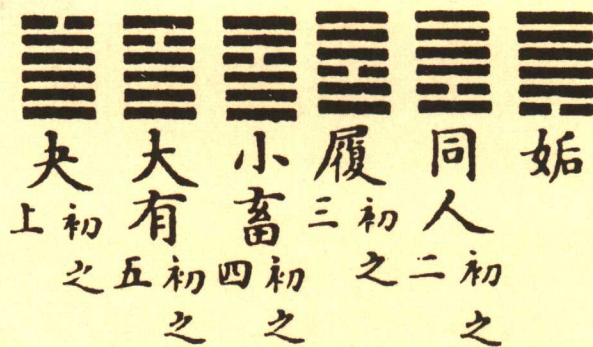 姤
同人初之二
履初之三
小畜初之四
大有初之五
夬初之上